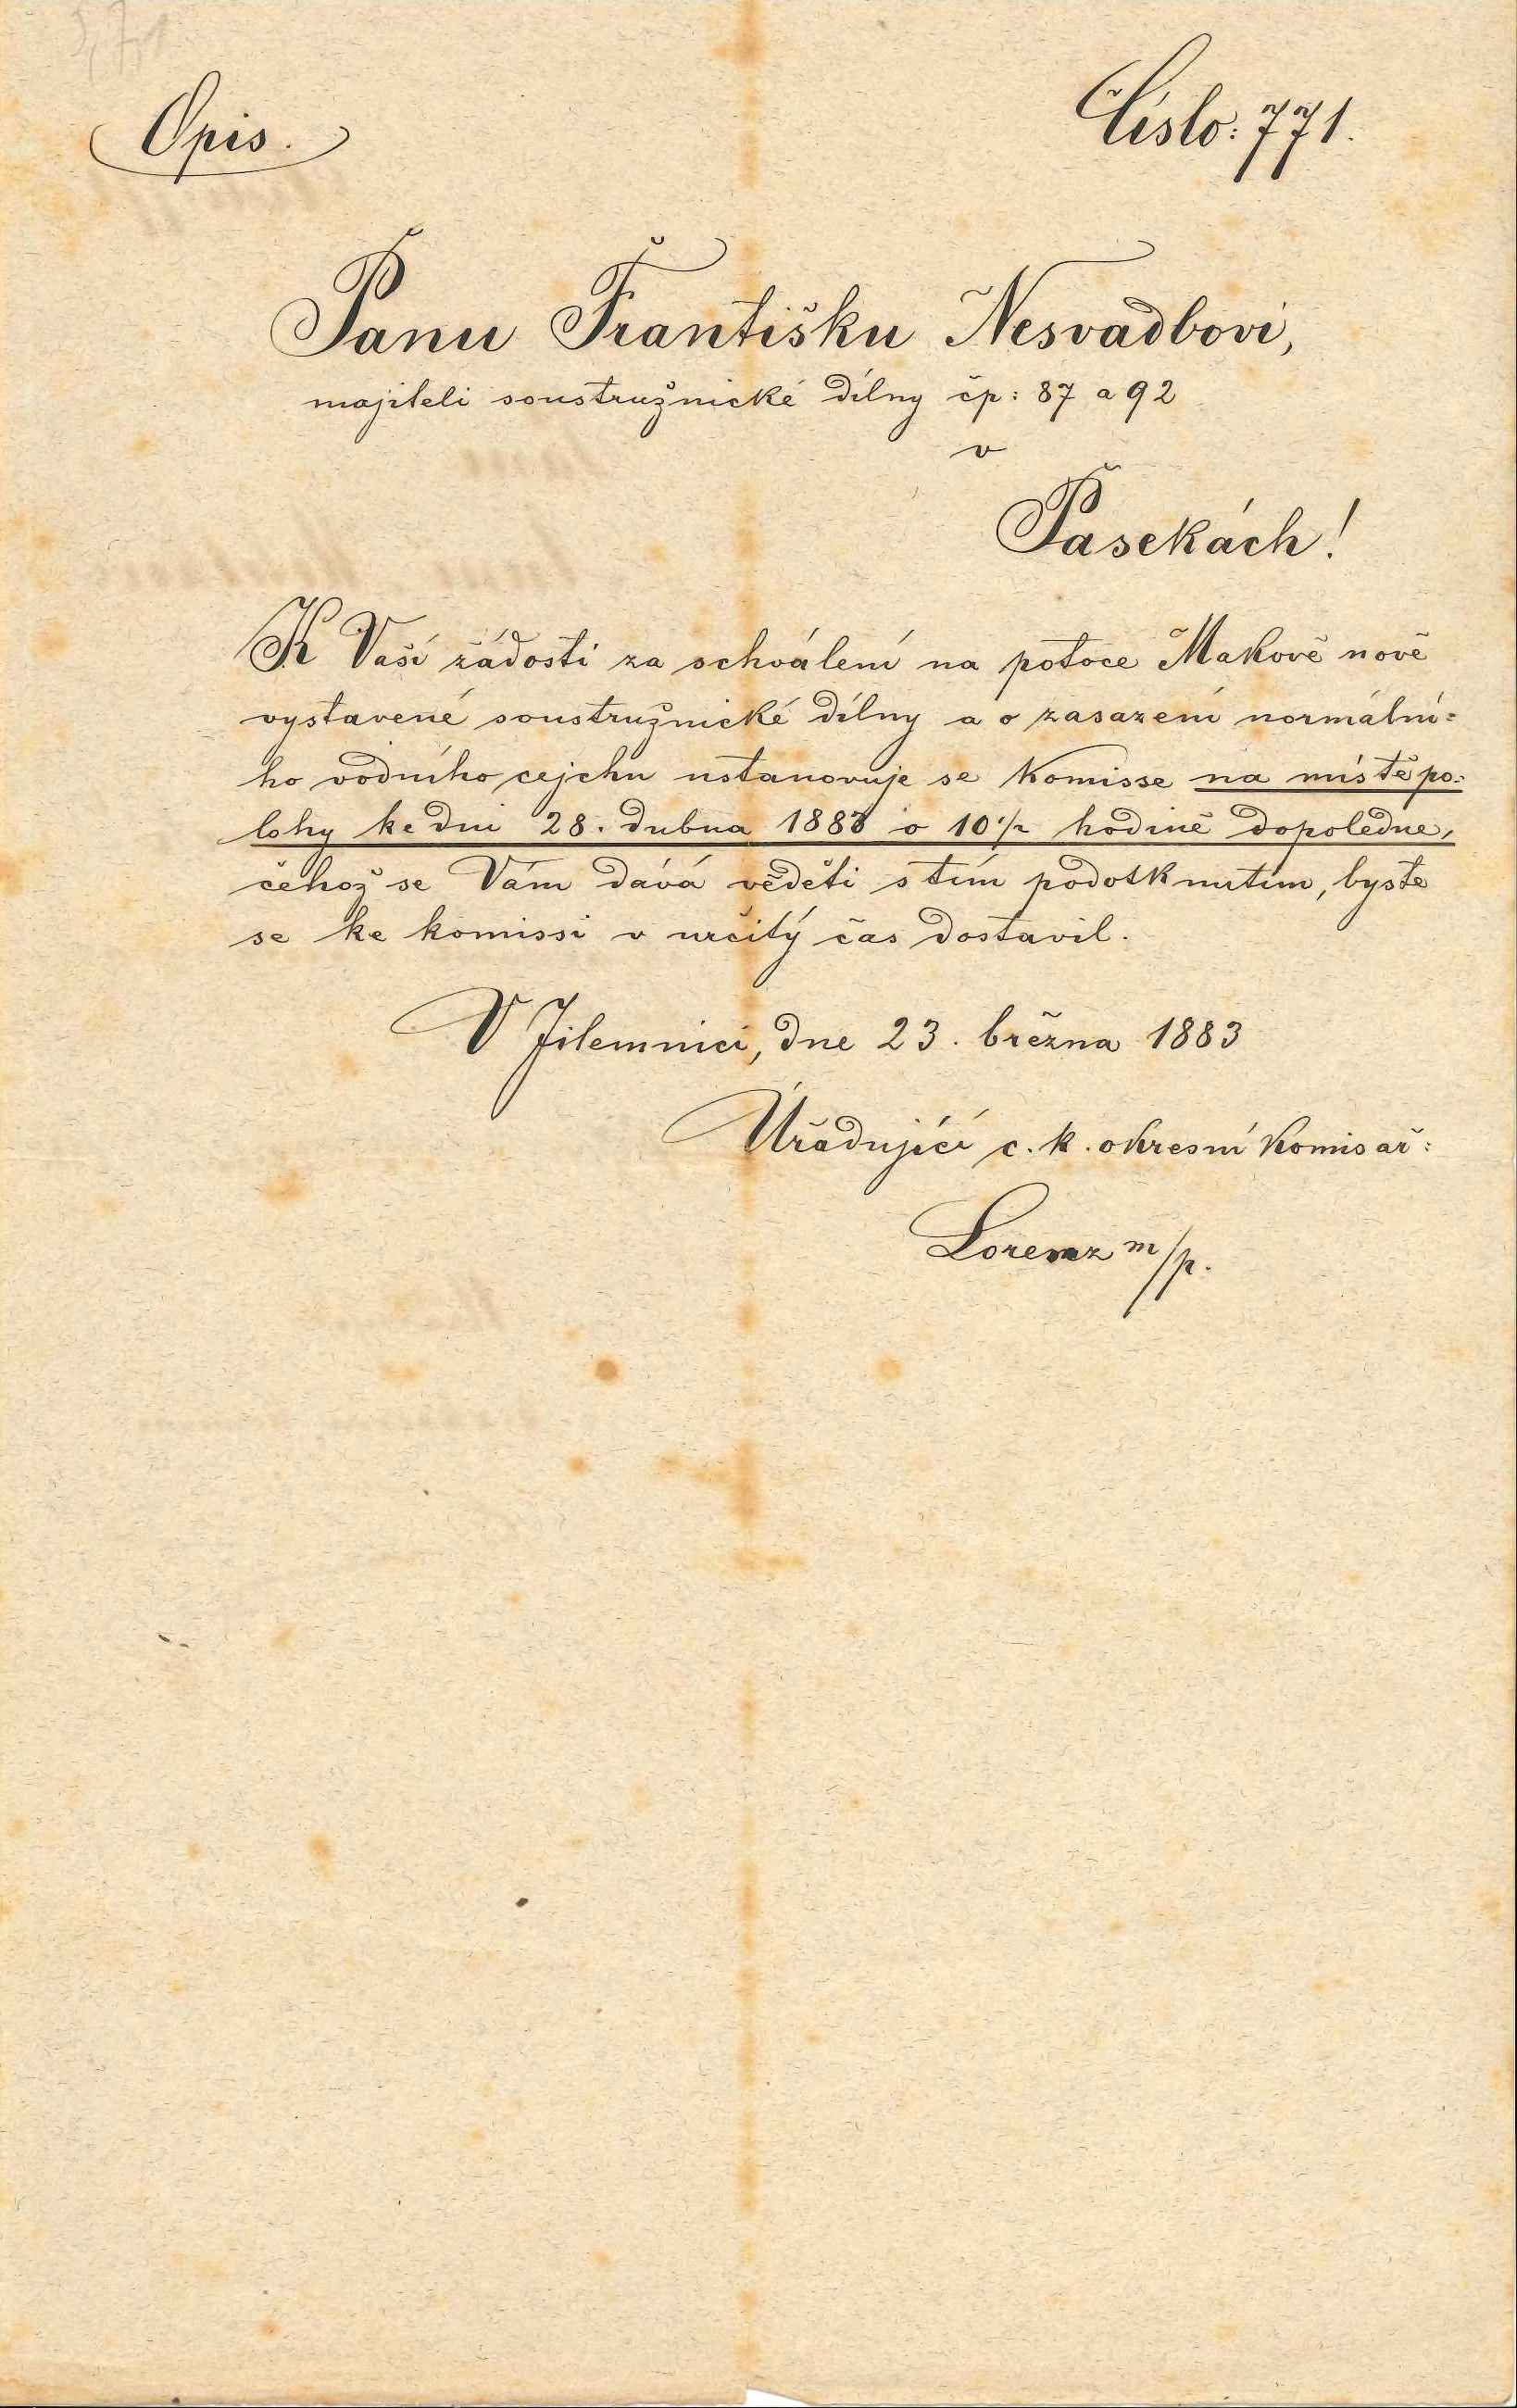 Opis.
Číslo: 771.
Panu Františku Nesvadbovi,
majiteli soustružnické dílny čp: 87 a 92
v
Pasekách!
K Vaší žádosti za schválení na potoce Makově nově
vystavené soustružnické dílny a o zasazení normální=
ho vodního cejchu ustanovuje se komisse na místě po=
lohy ke dni 28. dubna 1883 o 10 1/2 hodině dopoledne,
čehož se Vám dává věděti s tím podotknutím, byste
se ke komissi v určitý čas dostavil.
V Jilemnici, dne 23. března 1883
Úřadující c. k. okresní komisař:
Lorenz m/p.